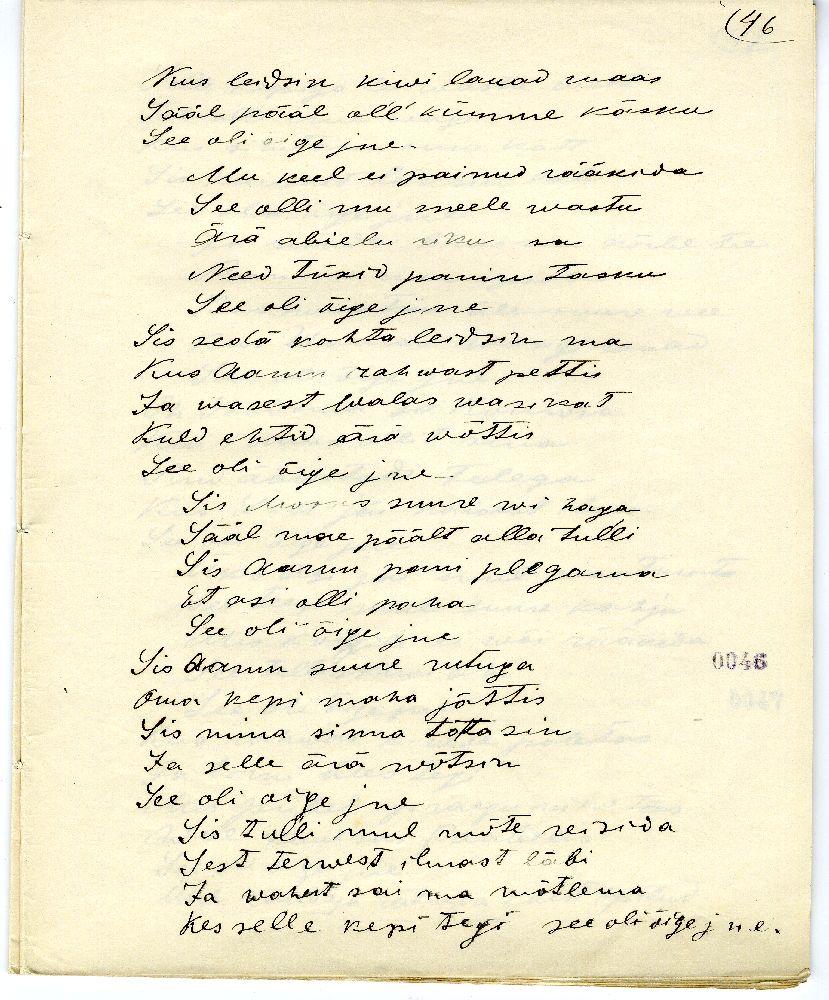 (46
Kus leidsin kiwi lauad maas
Sääl pääl oll' kümme käsku
See oli õige jne.
Mu keel ei painud rääkida
See olli mu meele wastu
Ärä abielu riku sa
Need tükid panin tasku
See oli õige jne
Sis sedä kohta leidsin ma
Kus Aarun rahwast pettis
Ja wasest walas wasikat
Kuld ehtid ärä wõttis
See oli õige jne
Sis Mooses suure wi haga
Sääl mäe päält alla tulli
Sis Aarun pani plegama
Et asi olli paha
See oli õige jne
Sis Aarun suure rutuga
Oma kepi maha jättis
0046
Sis mina sinna tõttasin
Ja selle ärä wõtsin
See oli õige jne
Sis tulli mul mõte reisida
Sest terwest ilmast läbi
Ja wahest sai ma mõtlema
Kes selle kepi tegi see oli õige jne.